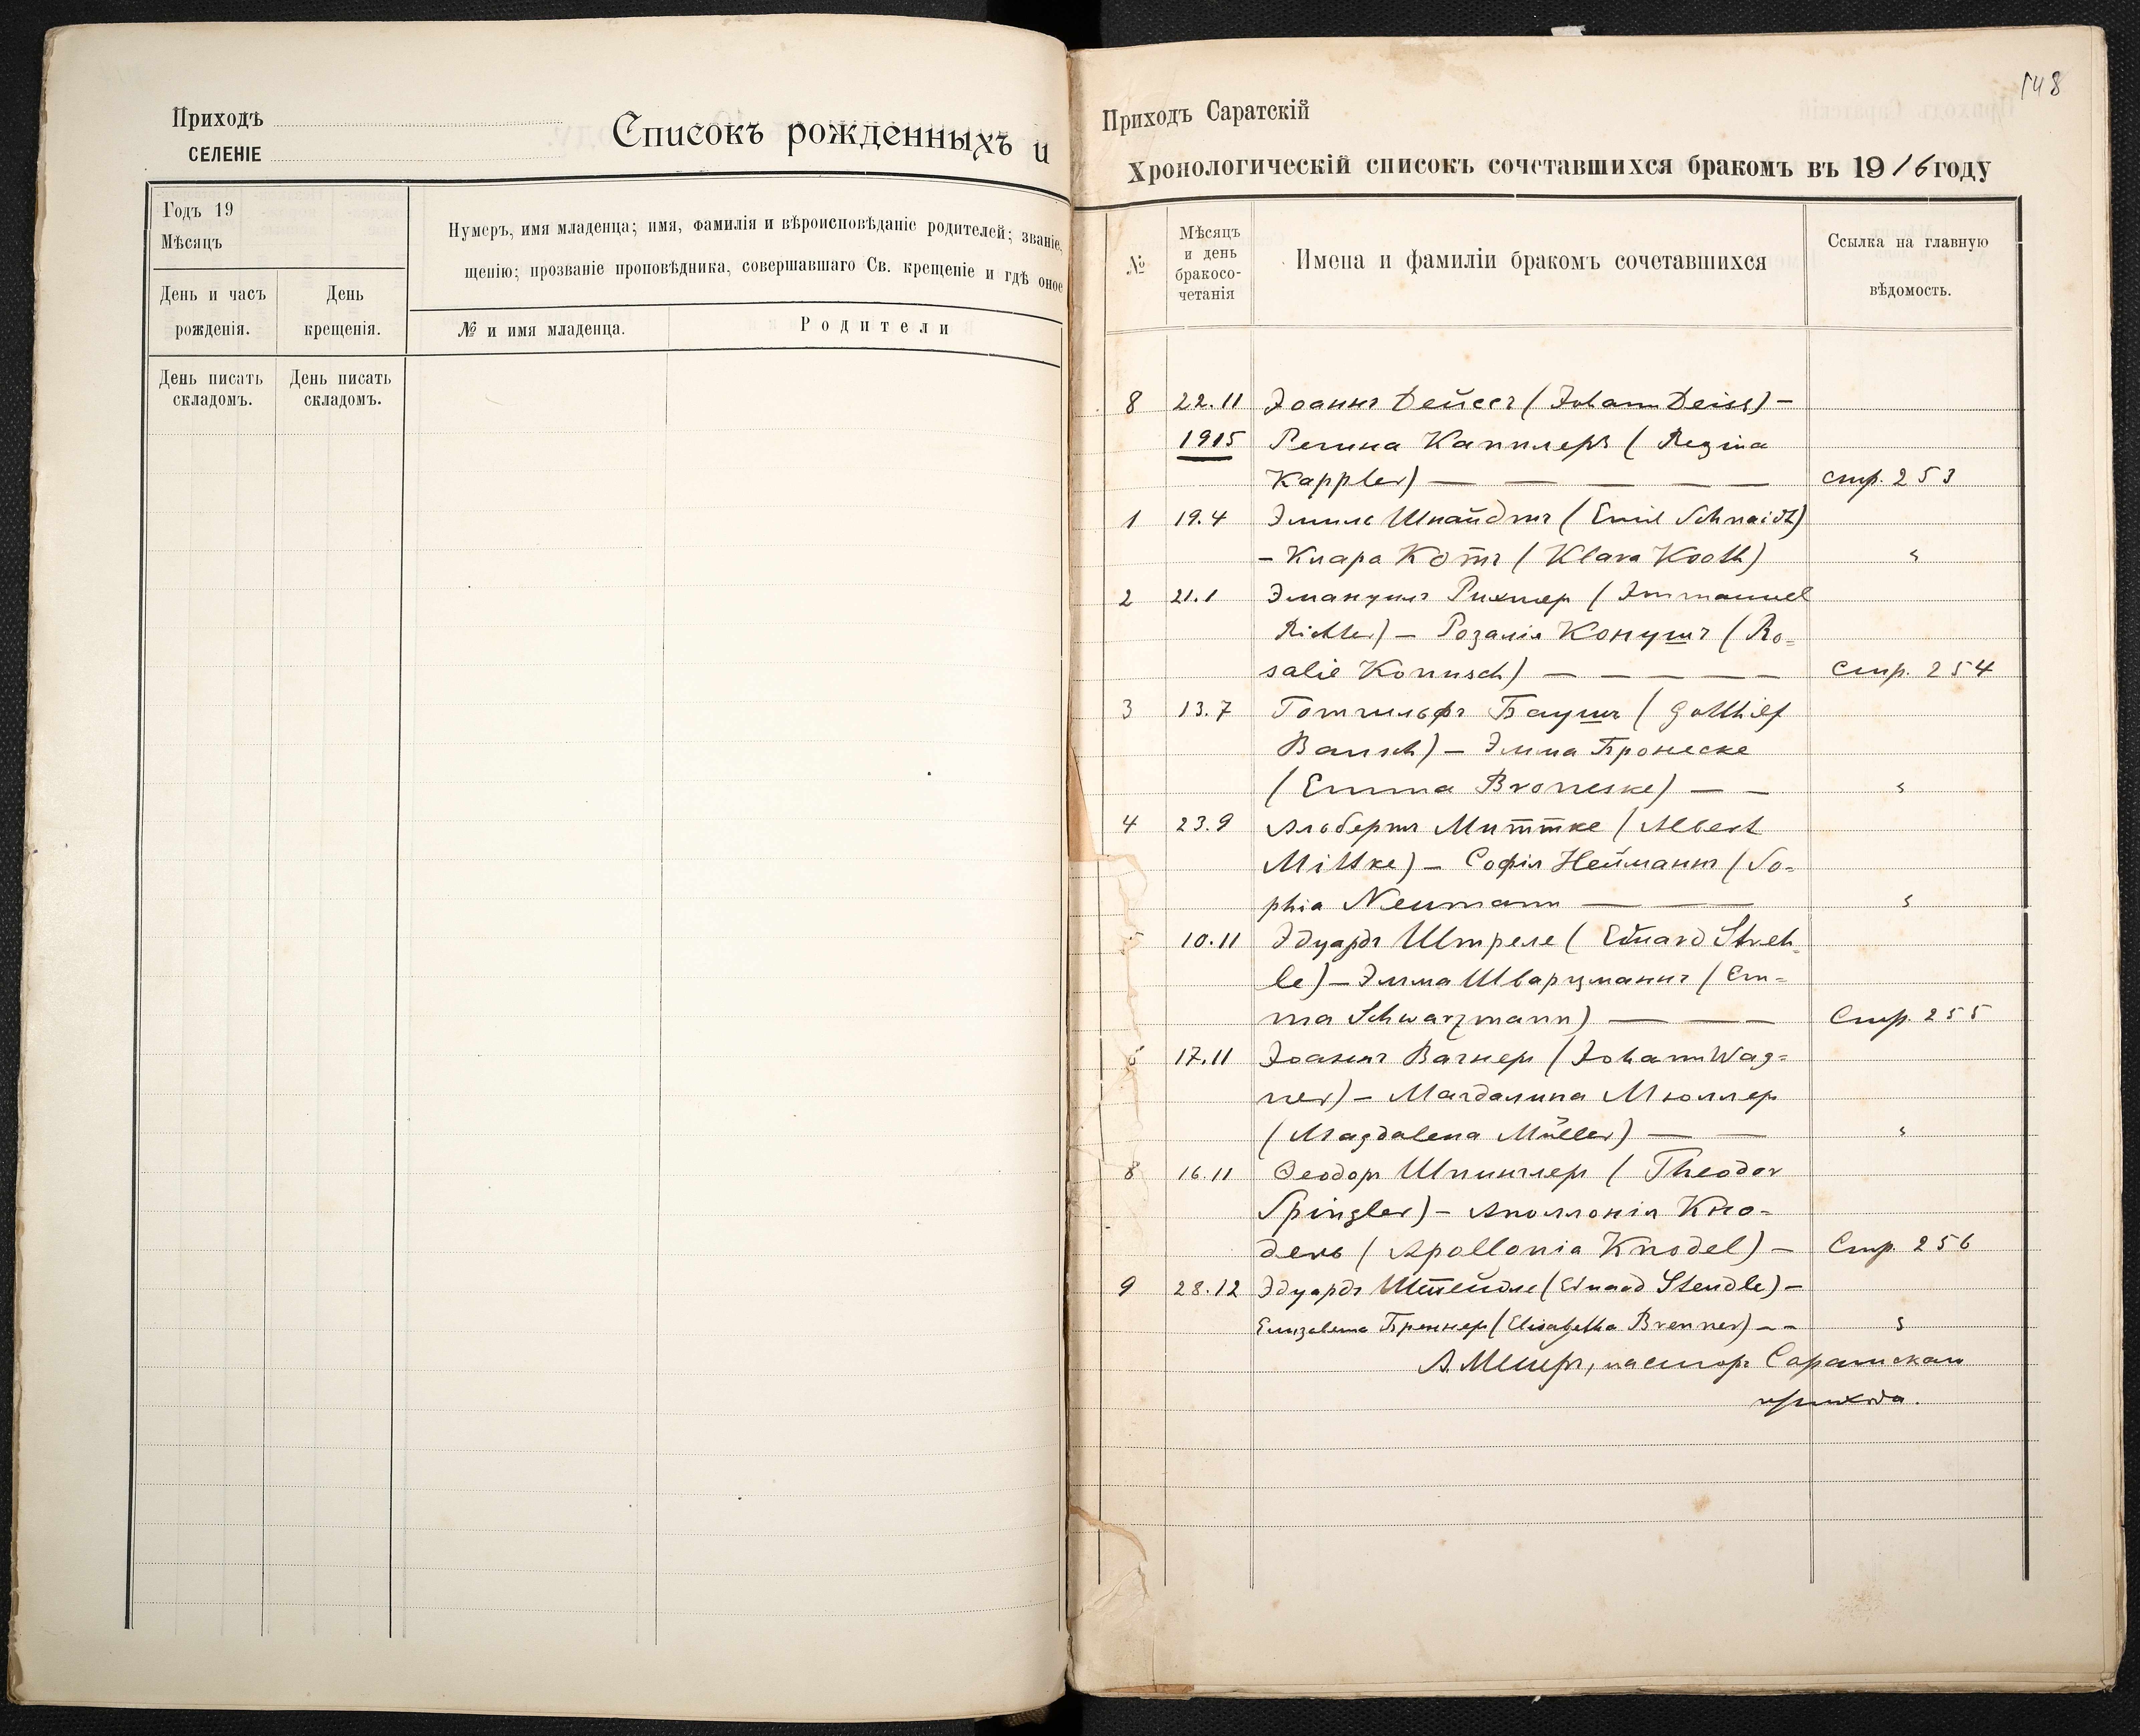 Приходъ
СЕЛЕНІЕ
Списокъ рожденныхъ и
Годъ 19
Мѣсяцъ
Нумеръ, имя младенца; имя, фамилія и вѣроисповѣданіе родителей; званіе,
щенію; прозваніе проповѣдника, совершавшаго Св. крещеніе и гдѣ оное
День и часъ
рожденія.
День
крещенія.
№ и имя младенца.
Родители
День писать
складомъ.
День писать
складомъ.
148
Приходъ Саратскій
Хронологическій списокъ сочетавшихся бракомъ въ 1916 году
№
Мѣсяцъ
и день
бракосо-
четанія
Имена и фамиліи бракомъ сочетавшихся
Ссылка на главную
вѣдомость.
8 22.11 Іоаннъ Дейссъ (Johann Deiss) —
1915 Регина Капплеръ (Regina
Kappler) — — — — — стр. 253
1 19.4 Эмиль Шнайдтъ (Emil Schnaidt)
— Клара Котъ (Klara Kooth) "
2 21.1 Эмануилъ Рихтер (Immanuel
Richter) — Розалія Конушъ (Ro=
salie Konusch) — — — — Стр. 254
3 13.7 Готгильфъ Баушъ (Gotthilf
Bausch) — Эмма Бронеске
(Emma Broneske) — — "
4 23.9 Альбертъ Миттке (Albert
Mittke) — Софія Нейманнъ (So=
phia Neumann — — "
5 10.11 Эдуардъ Штреле (Eduard Streh=
le) — Эмма Шварцманнъ (Em=
ma Schwarzmann) — — Стр. 255
6 17.11 Іоаннъ Вагнеръ (Johann Wag=
ner) — Магдалина Мюллер
(Magdalena Müller) — — "
8 16.11 Ѳеодоръ Шпинглеръ (Theodor
Spingler) — Аполлонія Кно=
дель (Apollonia Knodel) — Стр. 256
9 28.12 Эдуардъ Штейдле (Eduard Steudle) —
Елизавета Бреннеръ (Elisabetha Brenner) — — "
А. Мейеръ, пасторъ Саратскаго
прихода.